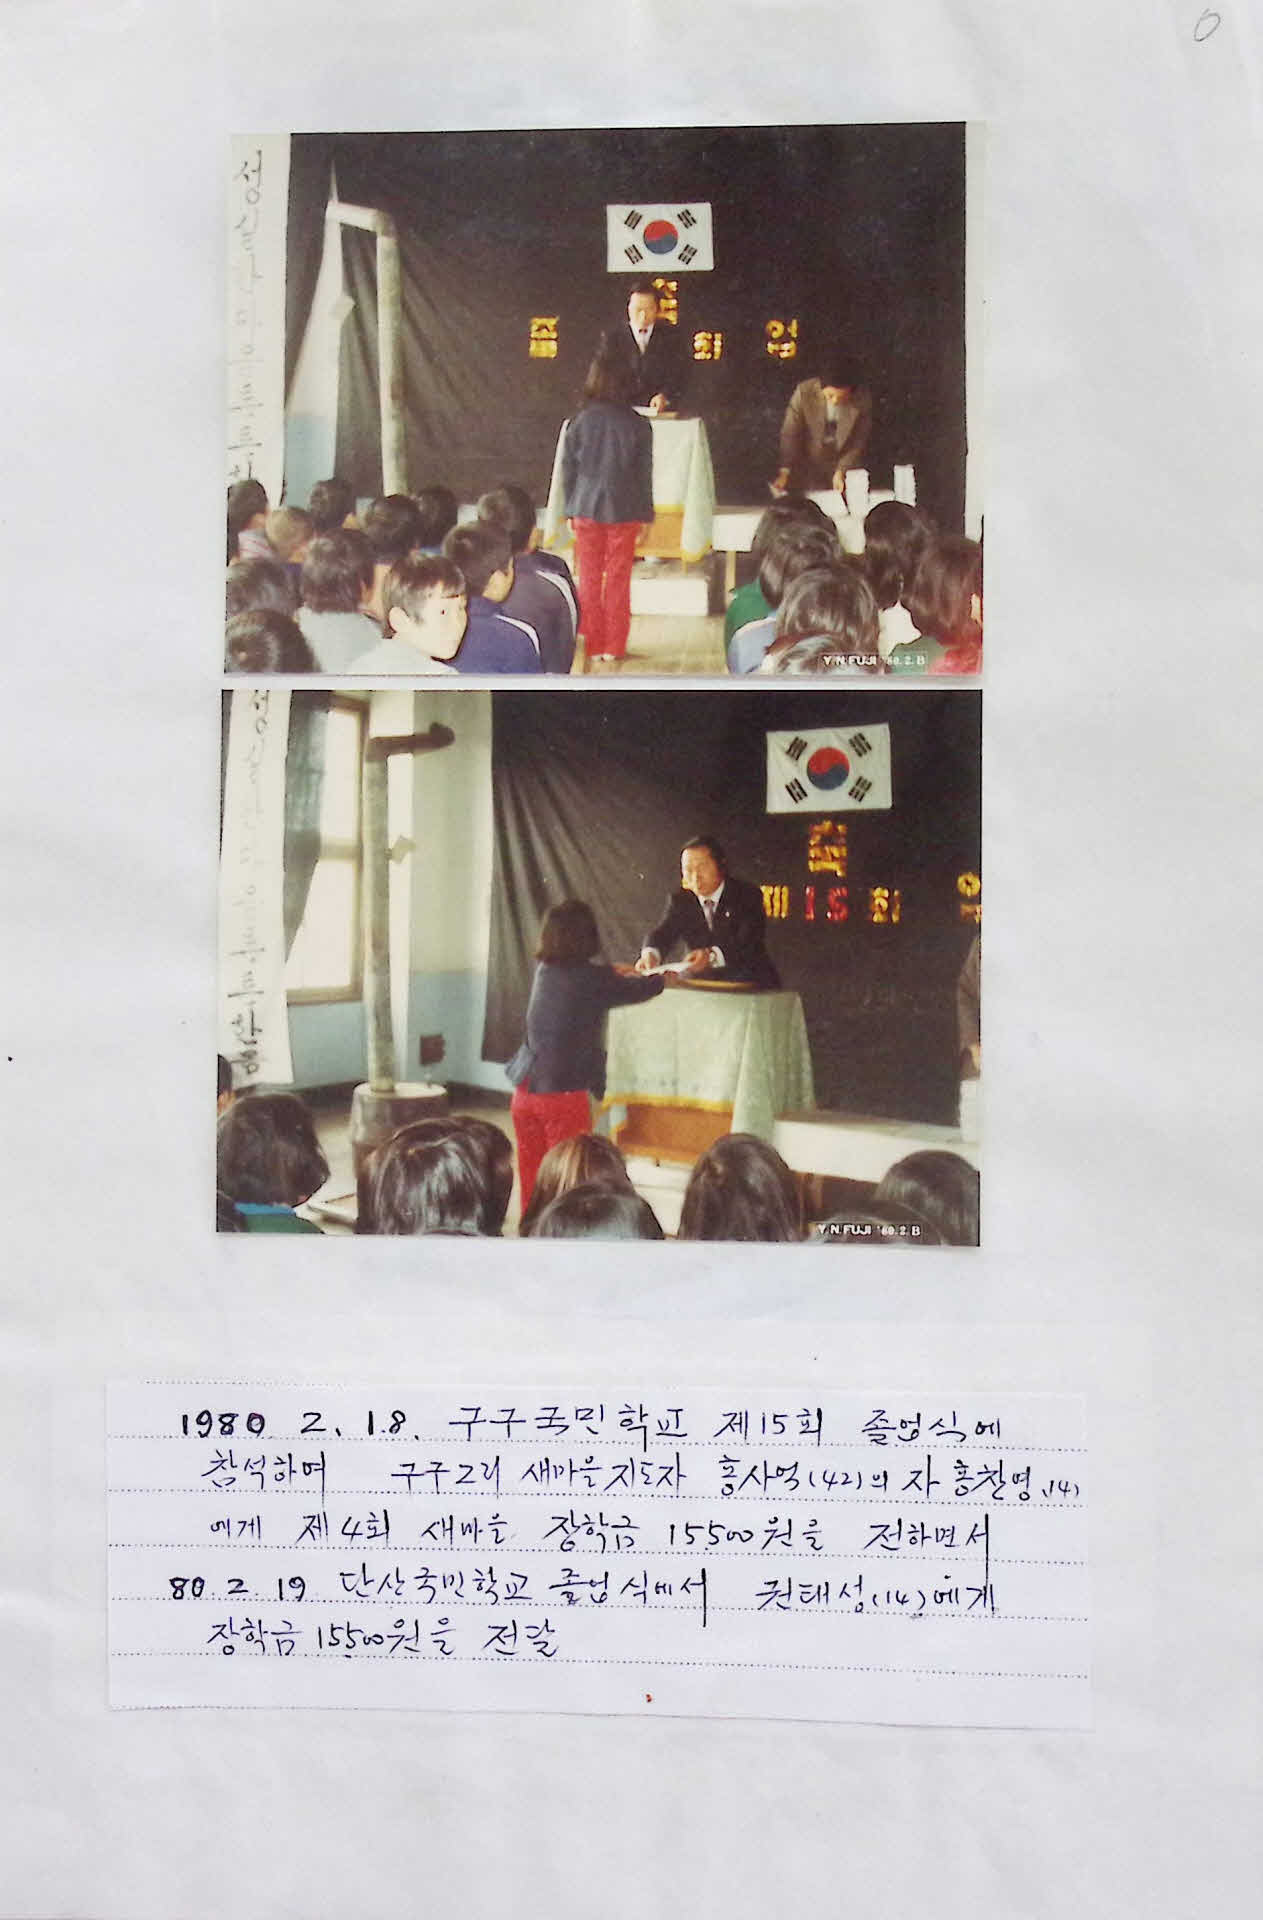 졸
축
회
업
Y.N.FUJI '80.2.B
축
제15회
Y.N.FUJI '80.2.B
1980 2. 18. 구구국민학교 제15회 졸업식에
참석하여 구구2리 새마을지도자 홍사억(42)의 자 홍찬영(14)
에게 제4회 새마을 장학금 15,500원을 전하면서
80.2.19 단산국민학교 졸업식에서 권태성(14)에게
장학금 15,500원을 전달